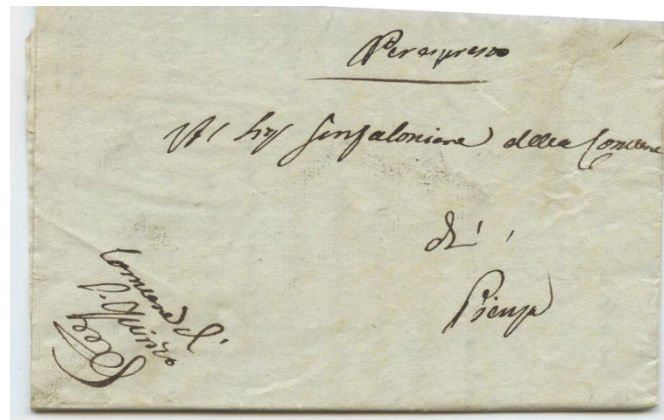 Per espresso
Al Sig Gonfaloniere della Comune
di
Pienza
Comune di